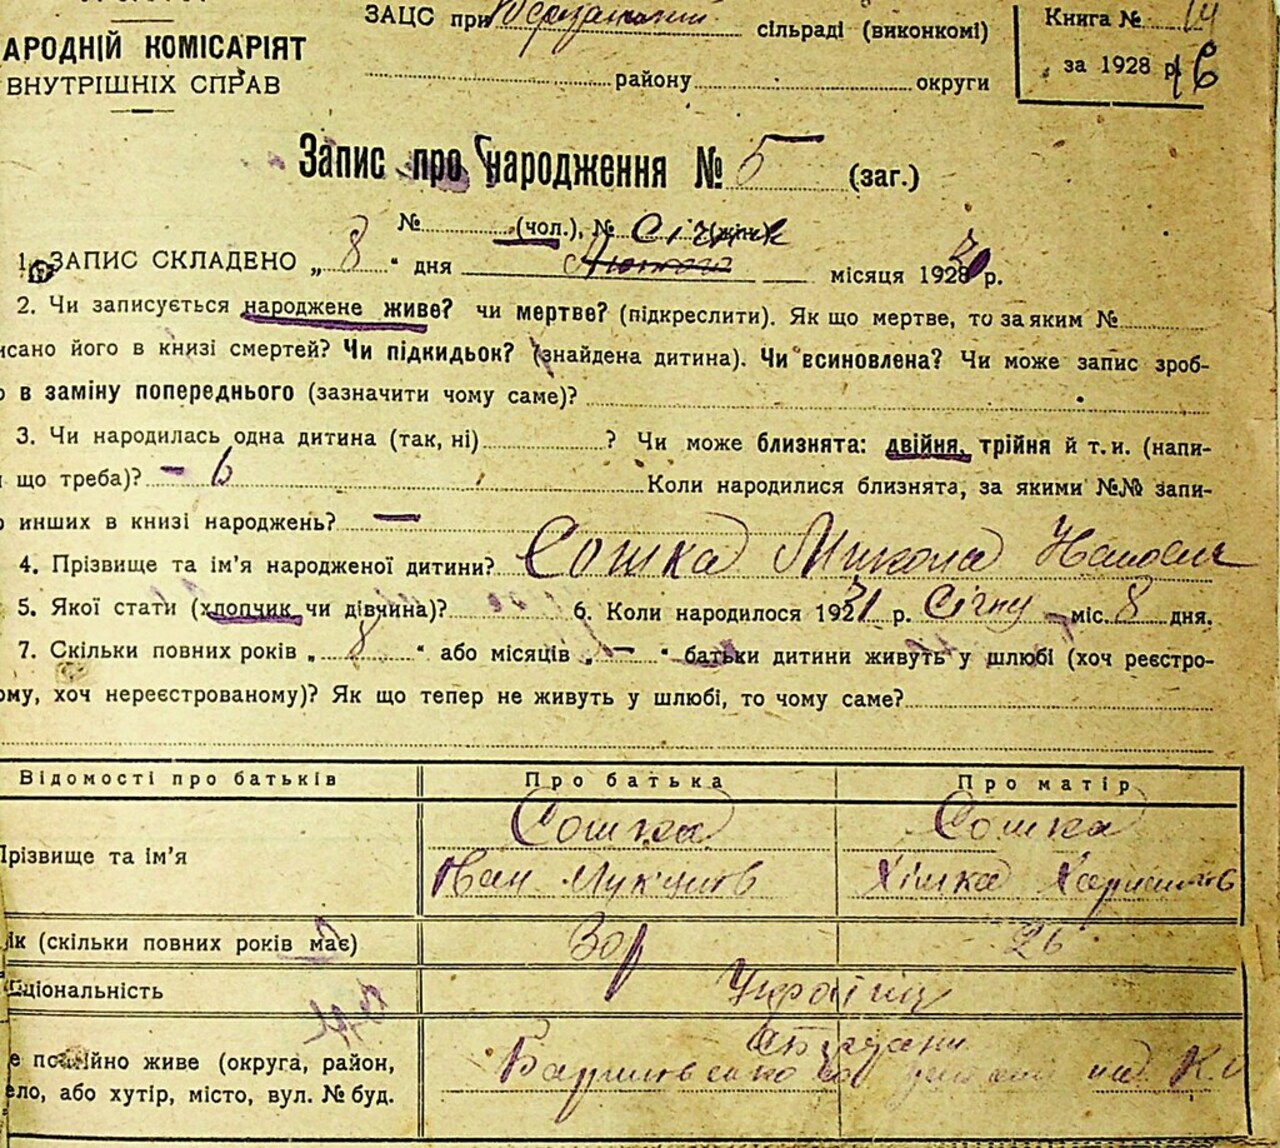 ЗАЦС при сільраді (виконкомі)
Книга № 14
АРОДНІЙ КОМІСАРІЯТ
ВНУТРІШНІХ СПРАВ
району округи
за 1928 р. 16
Запис про народження № 5 (заг.)
№ (чол.), № (жін.) Січня
1. ЗАПИС СКЛАДЕНО „ 8 “ дня Лютого місяця 1928 р.
2. Чи записується народжене живе? чи мертве? (підкреслити). Як що мертве, то за яким №
исано його в книзі смертей? Чи підкидьок? (знайдена дитина). Чи всиновлена? Чи може запис зроб-
о в заміну попереднього (зазначити чому саме)?
3. Чи народилась одна дитина (так, ні) ? Чи може близнята: двійня, трійня й т. и. (напи-
и що треба)? Коли народилися близнята, за якими №№ запи-
о инших в книзі народжень? —
4. Прізвище та ім’я народженої дитини? Сошка Микола
5. Якої стати (хлопчик чи дівчина)? 6. Коли народилося 1931 р. Січну міс. 8 дня.
7. Скільки повних років „ 8 “ або місяців „ — “ батьки дитини живуть у шлюбі (хоч реєстро-
ому, хоч нереєстрованому)? Як що тепер не живуть у шлюбі, то чому саме?
Відомості про батьків Про батька Про матір
Прізвище та ім’я
Сошка Сошка
Іван
ік (скільки повних років має) 30 р 26
ціональність Українці
е постійно живе (округа, район,
ело, або хутір, місто, вул. № буд.